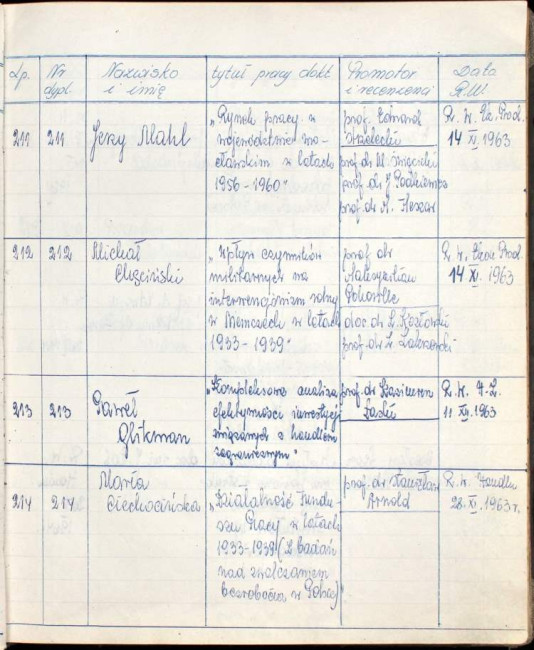 Lp.
Nr
dypl.
Nazwisko
i imię
tytuł pracy dokt.
Promotor
i recenzenci
Data
R.W.
211
211
Jerzy Mahl
„Rynek pracy w
województwie wro-
cławskim w latach
1956-1960”
prof. Edward
Strzelecki
prof. dr
prof. dr J
prof. dr
R. W. Prod.
14 XI. 1963
212
212
Michał
Chęciński
„Wpływ czynników
militarnych na
interwencjonizm rolny
w Niemczech w latach
1933-1939”
prof. dr
Maksymilian
Pohorille
doc. dr Kozłowski
prof. dr
R. W. Prod.
14 XI. 1963
213
213
Paweł
Glikman
„Kompleksowa analiza
efektywności inwestycji
związanych z handlem
zagranicznym”
prof. dr Kazimierz
Łaski
R. W.
11 XII. 1963
214
214
Maria
Ciechocińska
„Działalność Fundu-
szu Pracy w latach
1933-1939 (Z badań
nad zwalczaniem
bezrobocia w Polsce)”
prof. dr Stanisław
Arnold
R. W. Handlu
28. XI. 1963 r.